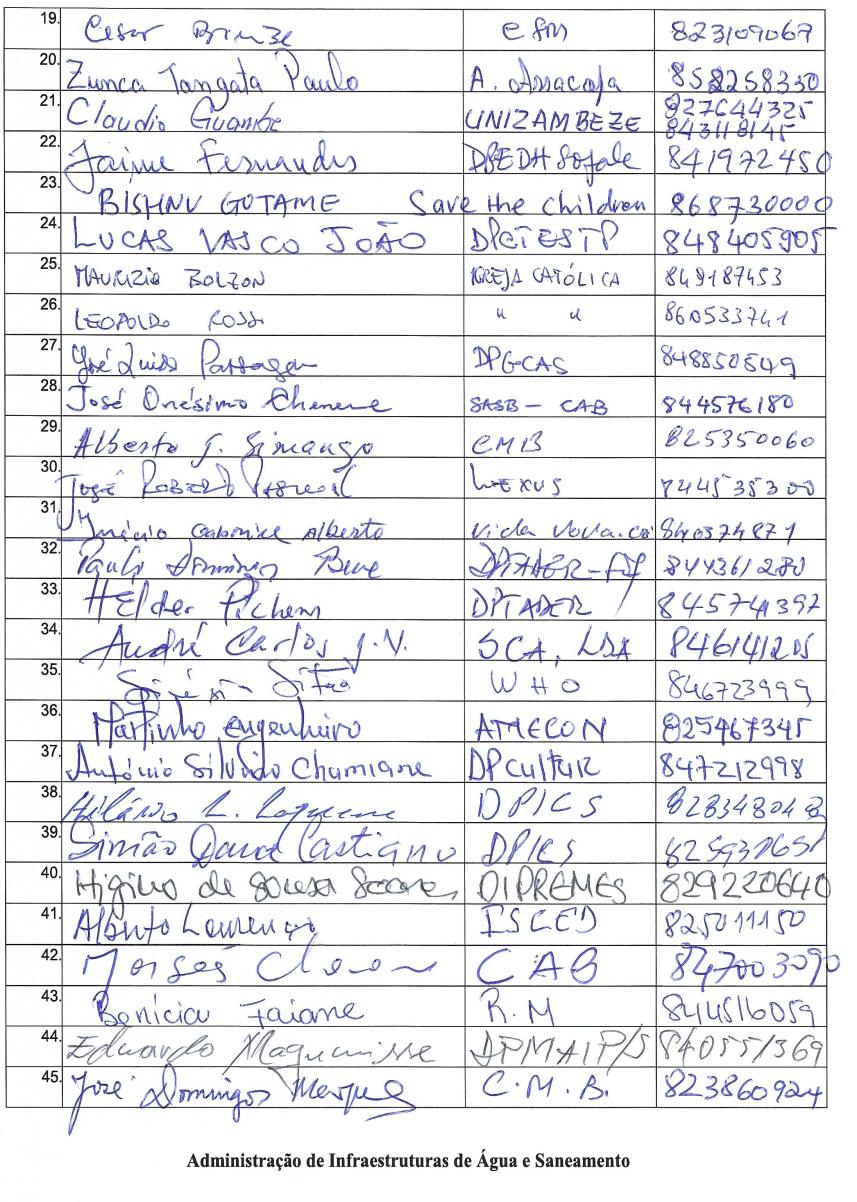 19. Cesar CFM 823109067
20. Zunca Tangata Paulo A. 858258330
21. Claudio Guambe UNIZAMBEZE 827644325
843118145
22. Jaime Fernandes DPEDH Sofale 841972450
23. BISHNU GOTAME Save the Children 868730000
24. LUCAS VASCO JOÃO DPCTESTP 848405905
25. MAURIZIO BOLZON IGREJA CATÓLICA 849187453
26. LEOPOLDO ROSSI " " 860533741
27. José Luis Passagem DPGCAS 848850549
28. José Onésimo SASB - CAB 844576180
29. Alberto J. Simango CMB 825350060
30. José Roberto Lexus 8445 35300
31. Inácio Alberto Vida Nova 840374871
32. Paulo Domingos 844361280
33. Hélder Pichem DPTADER 845741397
34. André Carlos J.V. SCA, LDA 846141205
35. Sitão WHO 846723999
36. Martinho Engenheiro AMECON 825467345
37. António Silvindo Chamiane DPCultur 847212998
38. Hilário L. DPICS 828348043
39. Simão Castiano DPICS
40. Higino de Sousa DIPREMES 829220640
41. Alberto Lourenço ISCED 825011150
42. Moisés CAB 847003090
43. Bonícia Faiane R.M 844516059
44. Eduardo Maquenisse 840551369
45. José Domingos C.M.B. 823860924
Administração de Infraestruturas de Água e Saneamento